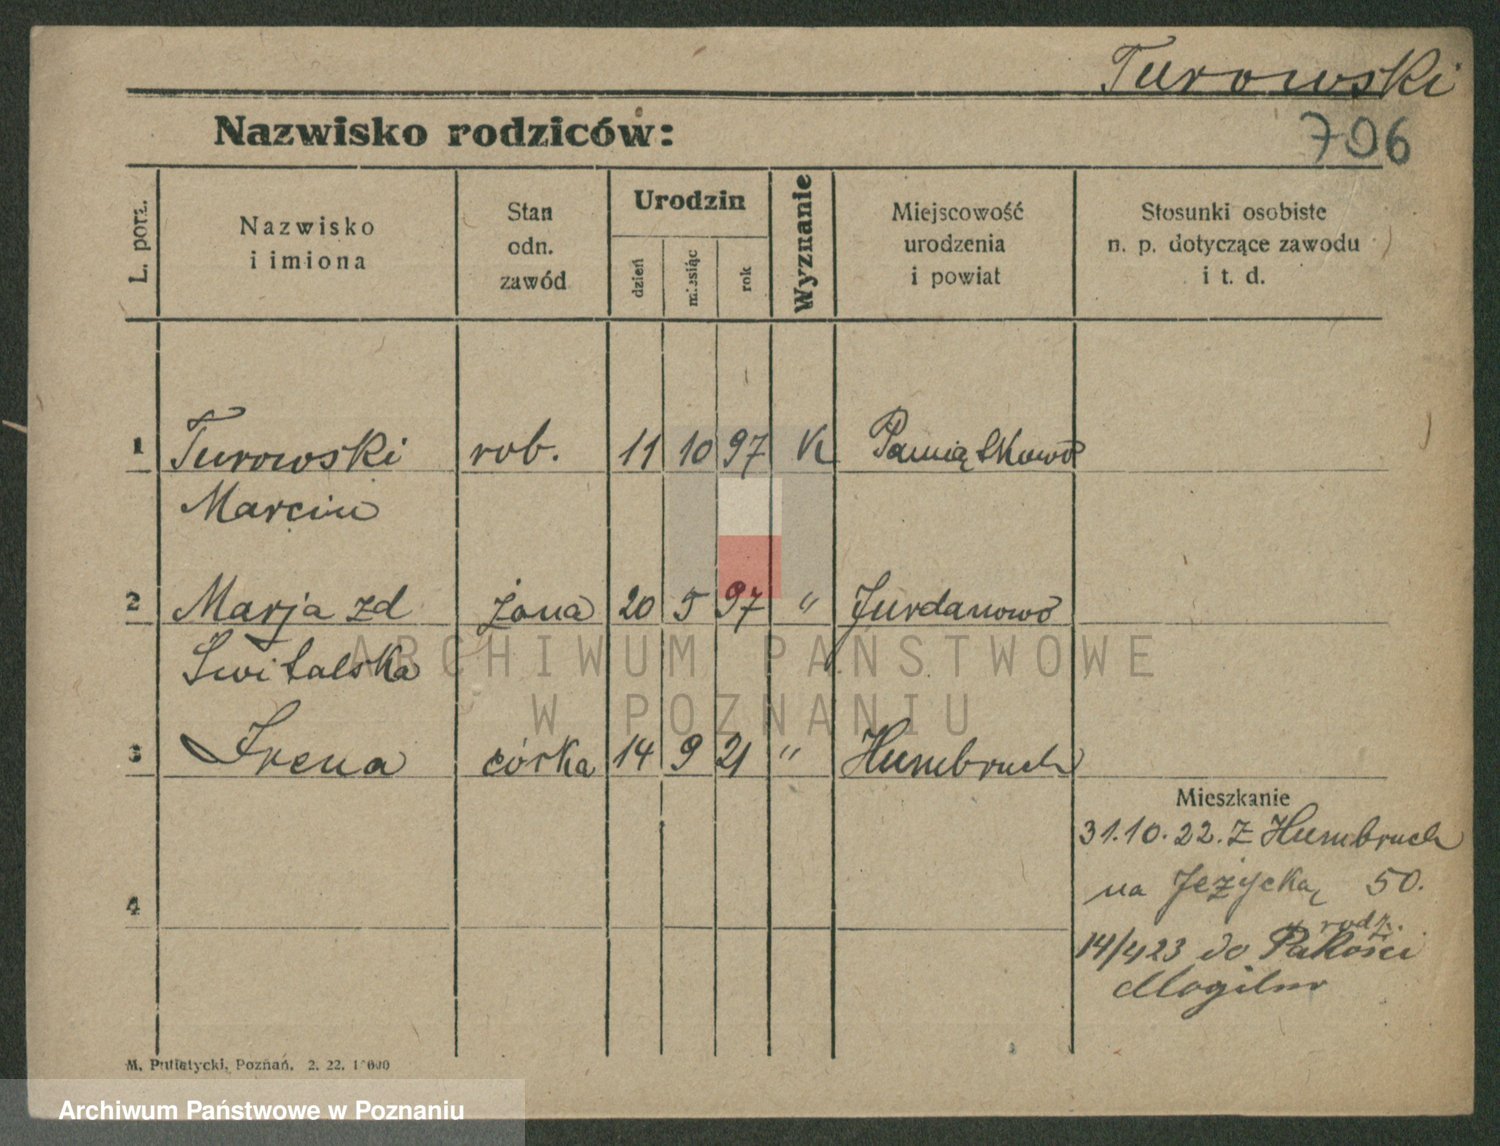 Turowski
Nazwisko rodziców:
706
L. porz.
Nazwisko
i imiona
Stan
odn.
zawód
Urodzin
dzień
miesiąc
rok
Wyznanie
Miejscowość
urodzenia
i powiat
Stosunki osobiste
n. p. dotyczące zawodu
i t. d.
1 Turowski rob. 11 10 97 K Pamiątkowo
Marcin
2 Marja zd żona 20 5 97 " Jurdanowo
Switalska
3 Irena córka 14 9 21 " Humbruch
Mieszkanie
31.10.22. z Humbruch
na Jeżycką 50.
4
rodz.
14/4 23 do Pakości
Mogilno
M. Putiatycki, Poznań. 2. 22.
ARCHIWUM PAŃSTWOWE
W POZNANIU
Archiwum Państwowe w Poznaniu